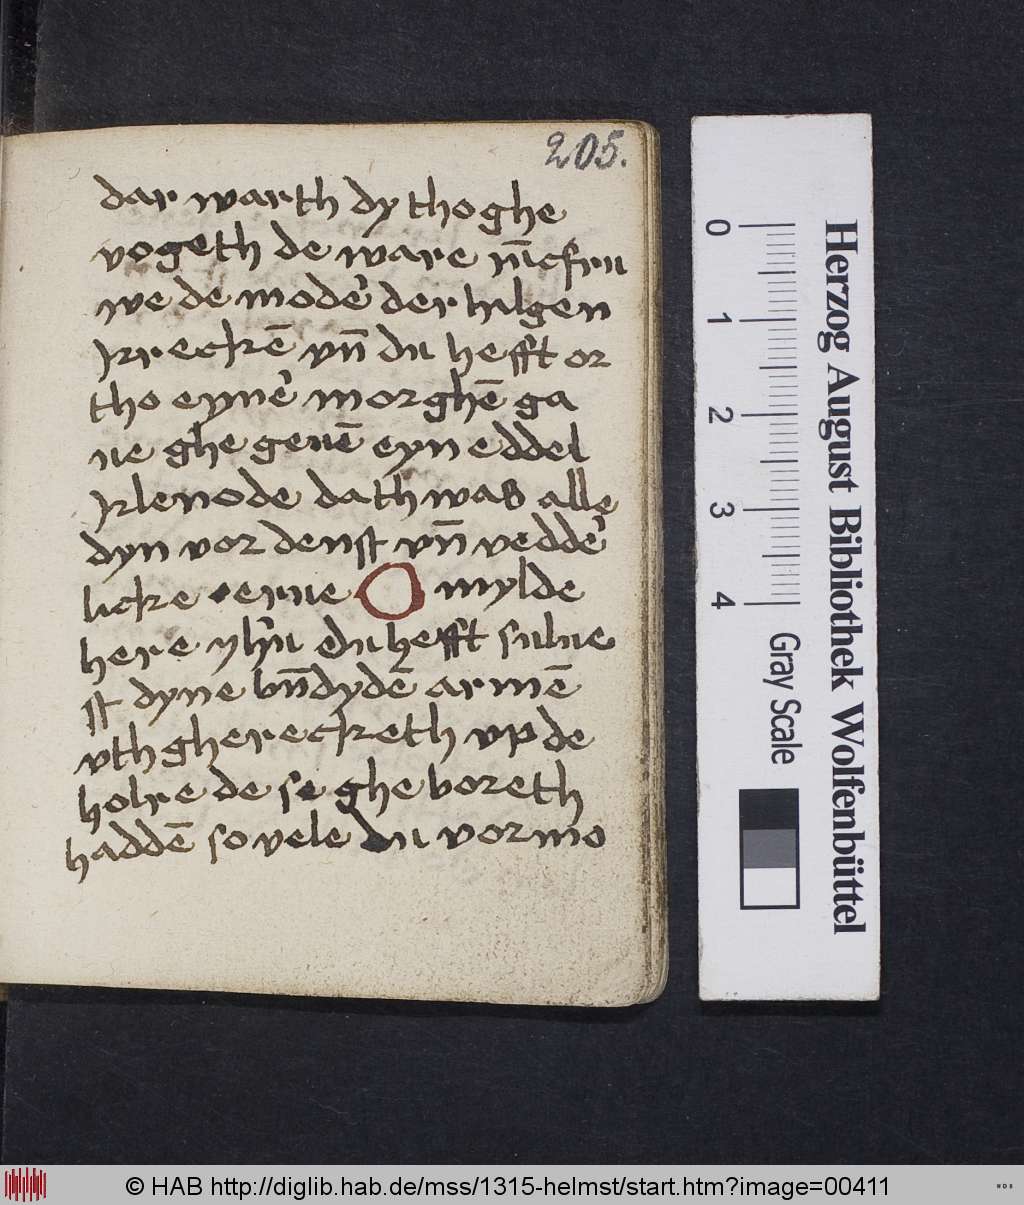 205.
dar warth dy tho ghe
vogeth de ware m̄cfru
we de modeʼ der hilgen
krerckē vn̄ du hefft or
tho eyneʼ morghē ga
ue ghe geuē eyn eddel
klenode dath was alle
dyn vor denst vn̄ veddeʼ
licke erue O mylde
here yhūu du hefft sulue
st dyne bn̄dydē armē
vth ghereckketh vp de
holte de se ghe boreth
haddē so vele du vor mo
Herzog August Bibliothek Wolfenbüttel
0 1 2 3 4
Gray Scale
© HAB http://diglib.hab.de/mss/1315-helmst/start.htm?image=00411